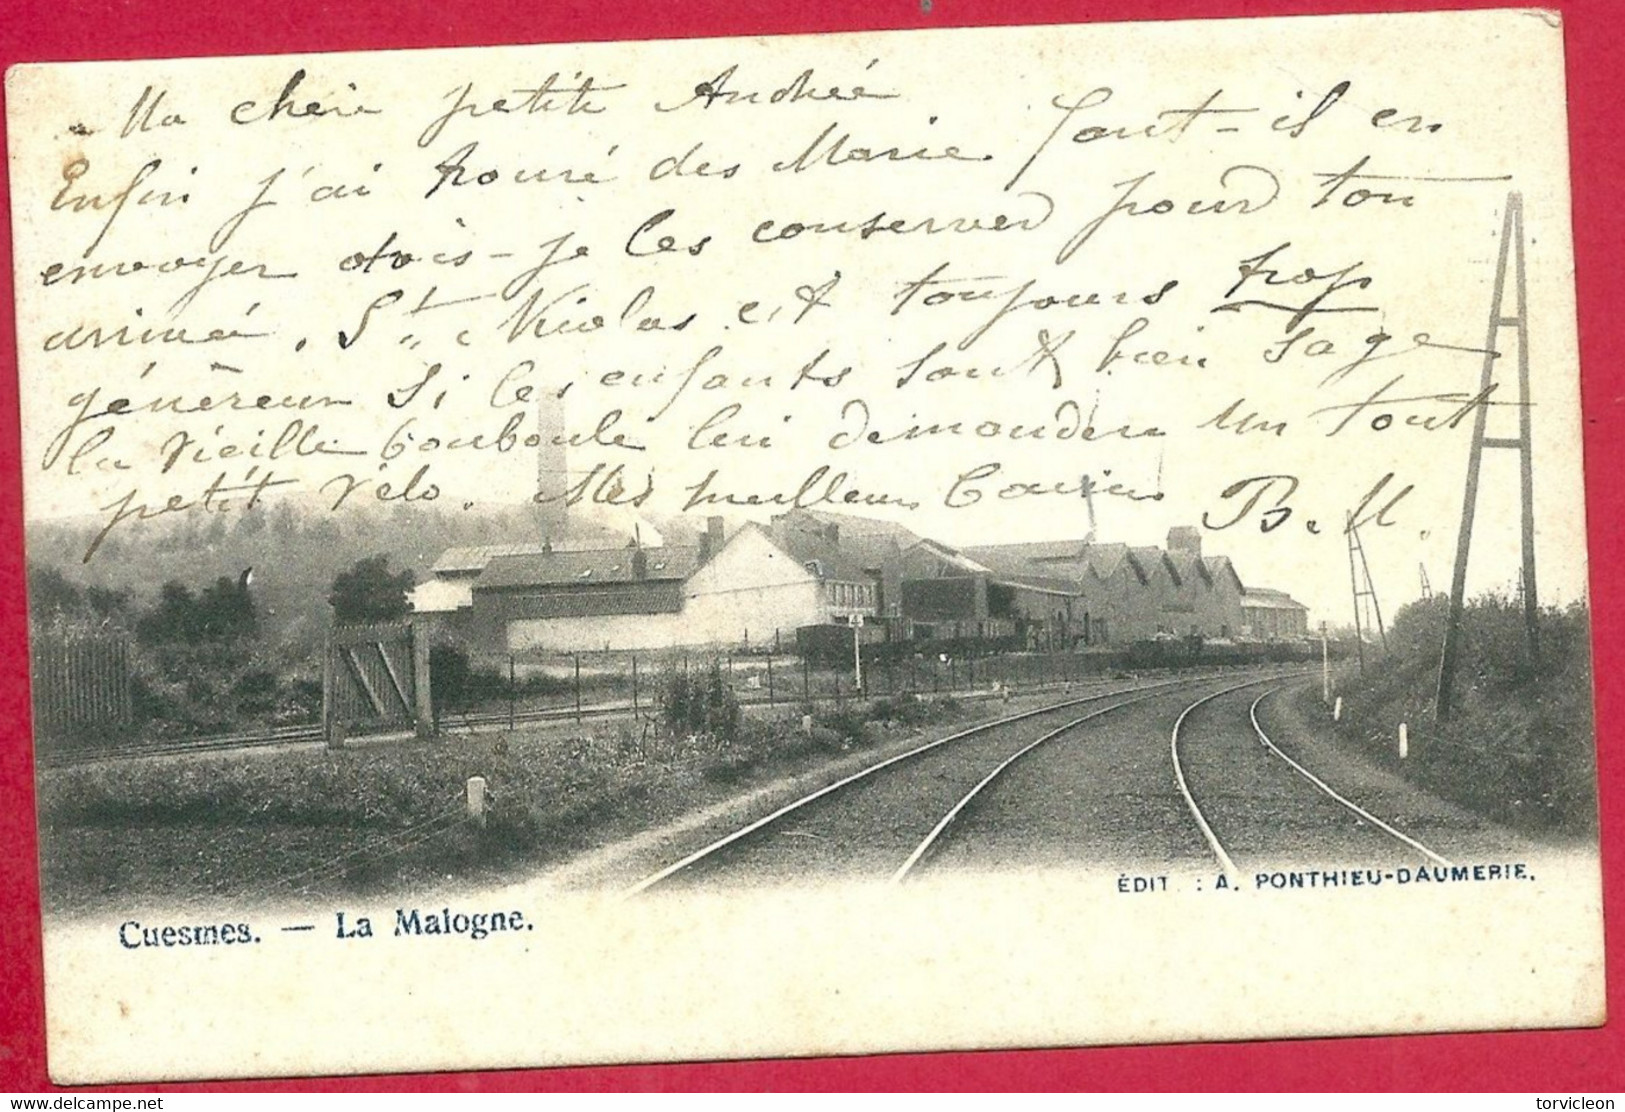 Ma chère petite Andrée
Enfin j'ai trouvé des Marie. Faut-il en
envoyer ou dois-je les conserver pour ton
arrivée. St. Nicolas est toujours trop
généreux Si les enfants sont bien sage
la vieille bouboule lui demandera un tout
petit vélo. Mes meilleurs B. M.
ÉDIT. : A. PONTHIEU-DAUMERIE.
Cuesmes. — La Malogne.
delcampe.net
torvicleon